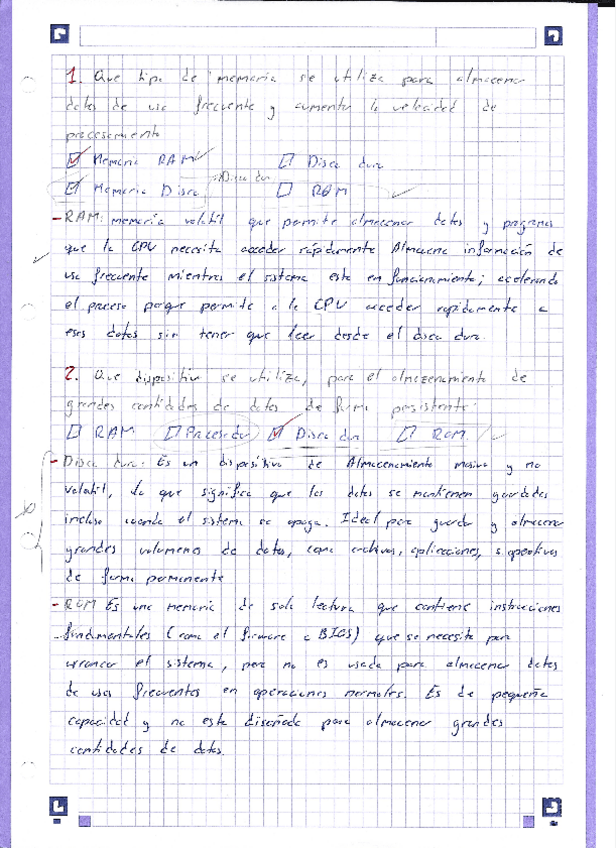 1. Que tipo de memoria se utiliza para almacenar
datos de uso frecuente y aumentar la velocidad de
procesamiento
Memoria RAM Disco duro
Memoria Disco Disco duro ROM
- RAM: memoria volatil que permite almacenar datos y programas
que la CPU necesita acceder rápidamente Almacena información de
uso frecuente mientras el sistema este en funcionamiento; acelerando
el proceso porque permite a la CPU acceder rapidamente a
esos datos sin tener que leer desde el disco duro.
2. Que dispositivo se utiliza, para el almazenamiento de
grandes cantidades de datos de forma persistente:
RAM Procesador Disco duro ROM
- Disco duro: Es un dispositivo de Almacenamiento masivo y no
volatil, lo que significa que los datos se mantienen guardados
incluso cuando el sistema se apaga. Ideal para guardar y almacenar
grandes volumenes de datos, como archivos, aplicaciones, s. operativos
de forma permanente
- ROM Es una memoria de solo lectura que contiene instrucciones
fundamentales (como el firmware o BIOS) que se necesita para
arrancar el sistema, pero no es usada para almacenar datos
de usos frecuentes en operaciones normales. Es de pequeña
capacidad y no esta diseñada para almacenar grandes
cantidades de datos.